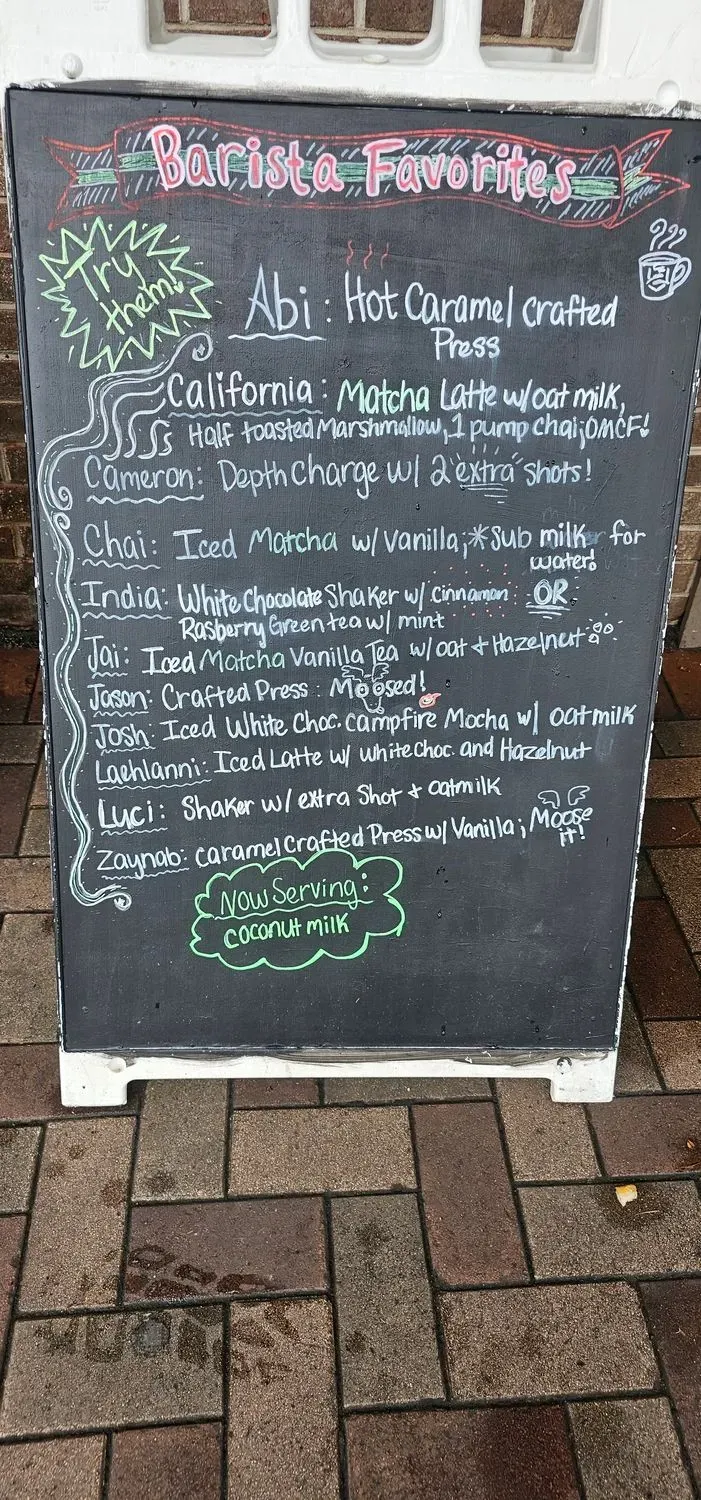 Barista Favorites
Try
them!
Abi: Hot Caramel Crafted
Press
California: Matcha Latte w/oat milk,
Half toasted Marshmallow, 1 pump chai; OMCF!
Cameron: Depth Charge w/ 2 "extra" shots!
Chai: Iced Matcha w/ Vanilla; *Sub milk for
water!
India: White Chocolate Shaker w/ cinnamon OR
Rasberry Green tea w/ mint
Jai: Iced Matcha Vanilla Tea w/ oat + Hazelnut
Jason: Crafted Press: Moosed!
Josh: Iced White Choc. campfire Mocha w/ oatmilk
Laehlanni: Iced Latte w/ white choc. and Hazelnut
Luci: Shaker w/ extra Shot + oatmilk
Zaynab: caramel Crafted Press w/ Vanilla; Moose
it!
Now Serving:
coconut milk